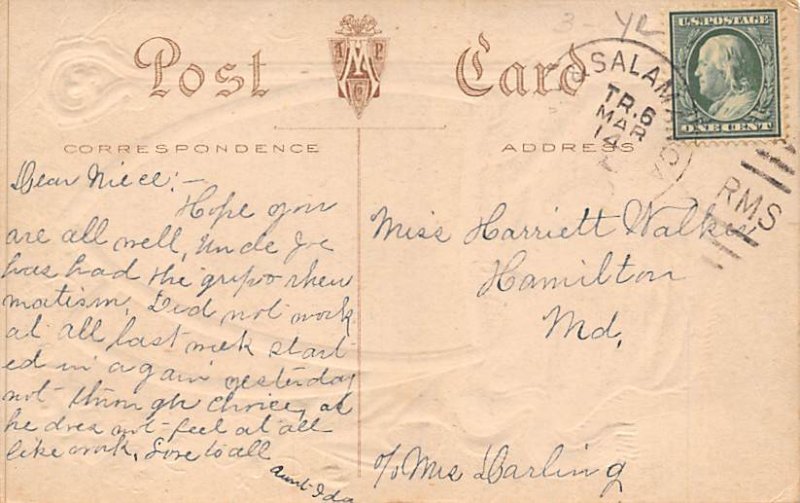 3 - YR
Post Card
A M P
C
U.S. POSTAGE
ONE CENT
SALAMA
TR. 6
MAR
14
RMS
CORRESPONDENCE
ADDRESS
Dear Niece:-
Hope you
are all well, Uncle Joe
has had the grip & rheu
matism, Did not work
at all last week start
ed in again yesterday
not through choice, as
he does not feel at all
like work. Love to all
Aunt Ida
Miss Harriett Walker
Hamilton
Md.
c/o Mrs Darling